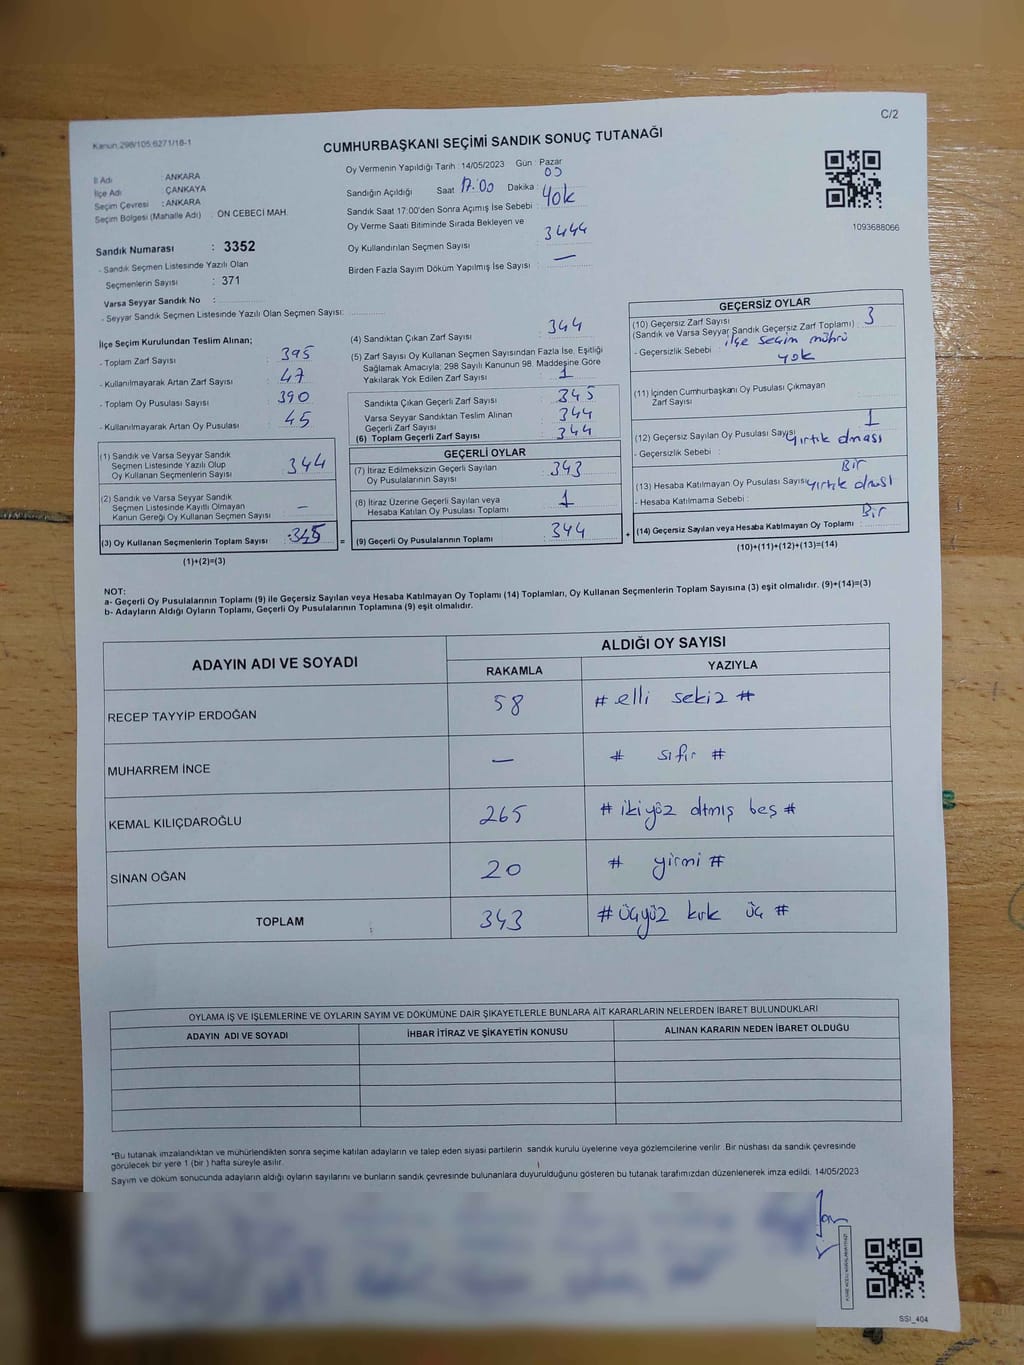 C/2
Kanun 298/105;6271/18-1
CUMHURBAŞKANI SEÇİMİ SANDIK SONUÇ TUTANAĞI
İl Adı : ANKARA
İlçe Adı : ÇANKAYA
Seçim Çevresi : ANKARA
Seçim Bölgesi (Mahalle Adı) : ÖN CEBECİ MAH.
Sandık Numarası : 3352
- Sandık Seçmen Listesinde Yazılı Olan
Seçmenlerin Sayısı : 371
Varsa Seyyar Sandık No :
- Seyyar Sandık Seçmen Listesinde Yazılı Olan Seçmen Sayısı:
Oy Vermenin Yapıldığı Tarih : 14/05/2023 Gün : Pazar
Sandığın Açıldığı Saat 17:00 Dakika : 00
Sandık Saat 17:00'den Sonra Açımış İse Sebebi : Yok
Oy Verme Saati Bitiminde Sırada Bekleyen ve
Oy Kullandırılan Seçmen Sayısı : 3444
Birden Fazla Sayım Döküm Yapılmış İse Sayısı : —
1093688066
İlçe Seçim Kurulundan Teslim Alınan;
- Toplam Zarf Sayısı : 395
- Kullanılmayarak Artan Zarf Sayısı : 47
- Toplam Oy Pusulası Sayısı : 390
- Kullanılmayarak Artan Oy Pusulası : 45
(1) Sandık ve Varsa Seyyar Sandık
Seçmen Listesinde Yazılı Olup
Oy Kullanan Seçmenlerin Sayısı : 344
(2) Sandık ve Varsa Seyyar Sandık
Seçmen Listesinde Kayıtlı Olmayan
Kanun Gereği Oy Kullanan Seçmen Sayısı : —
(3) Oy Kullanan Seçmenlerin Toplam Sayısı : 345
(1)+(2)=(3)
(4) Sandıktan Çıkan Zarf Sayısı : 344
(5) Zarf Sayısı Oy Kullanan Seçmen Sayısından Fazla İse, Eşitliği
Sağlamak Amacıyla; 298 Sayılı Kanunun 98. Maddesine Göre
Yakılarak Yok Edilen Zarf Sayısı : 1
Sandıkta Çıkan Geçerli Zarf Sayısı : 345
Varsa Seyyar Sandıktan Teslim Alınan
Geçerli Zarf Sayısı : 344
(6) Toplam Geçerli Zarf Sayısı : 344
GEÇERLİ OYLAR
(7) İtiraz Edilmeksizin Geçerli Sayılan
Oy Pusulalarının Sayısı : 343
(8) İtiraz Üzerine Geçerli Sayılan veya
Hesaba Katılan Oy Pusulası Toplamı : 1
= (9) Geçerli Oy Pusulalarının Toplamı : 344
GEÇERSİZ OYLAR
(10) Geçersiz Zarf Sayısı
(Sandık ve Varsa Seyyar Sandık Geçersiz Zarf Toplamı) : 3
- Geçersizlik Sebebi : ilçe seçim mührü
yok
(11) İçinden Cumhurbaşkanı Oy Pusulası Çıkmayan
Zarf Sayısı :
(12) Geçersiz Sayılan Oy Pusulası Sayısı : 1
- Geçersizlik Sebebi : yırtık olması
(13) Hesaba Katılmayan Oy Pusulası Sayısı : Bir
- Hesaba Katılmama Sebebi : yırtık olması
+ (14) Geçersiz Sayılan veya Hesaba Katılmayan Oy Toplamı : Bir
(10)+(11)+(12)+(13)=(14)
NOT:
a- Geçerli Oy Pusulalarının Toplamı (9) ile Geçersiz Sayılan veya Hesaba Katılmayan Oy Toplamı (14) Toplamları, Oy Kullanan Seçmenlerin Toplam Sayısına (3) eşit olmalıdır. (9)+(14)=(3)
b- Adayların Aldığı Oyların Toplamı, Geçerli Oy Pusulalarının Toplamına (9) eşit olmalıdır.
ADAYIN ADI VE SOYADI ALDIĞI OY SAYISI
RAKAMLA YAZIYLA
RECEP TAYYİP ERDOĞAN 58 # elli sekiz #
MUHARREM İNCE — # sıfır #
KEMAL KILIÇDAROĞLU 265 # ikiyüz atmış beş #
SİNAN OĞAN 20 # yirmi #
TOPLAM 343 # üçyüz kırk üç #
OYLAMA İŞ VE İŞLEMLERİNE VE OYLARIN SAYIM VE DÖKÜMÜNE DAİR ŞİKAYETLERLE BUNLARA AİT KARARLARIN NELERDEN İBARET BULUNDUKLARI
ADAYIN ADI VE SOYADI İHBAR İTİRAZ VE ŞİKAYETİN KONUSU ALINAN KARARIN NEDEN İBARET OLDUĞU
*Bu tutanak imzalandıktan ve mühürlendikten sonra seçime katılan adayların ve talep eden siyasi partilerin sandık kurulu üyelerine veya gözlemcilerine verilir. Bir nüshası da sandık çevresinde
görülecek bir yere 1 (bir ) hafta süreyle asılır.
Sayım ve döküm sonucunda adayların aldığı oyların sayılarını ve bunların sandık çevresinde bulunanlara duyurulduğunu gösteren bu tutanak tarafımızdan düzenlenerek imza edildi. 14/05/2023
SSİ_404